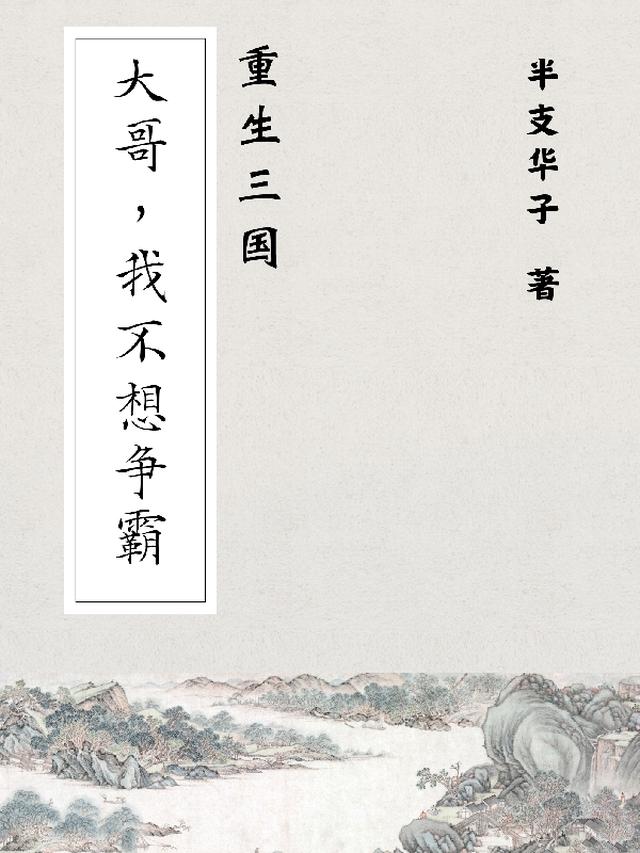 大哥，我不想争霸
重生三国
半支华子 著